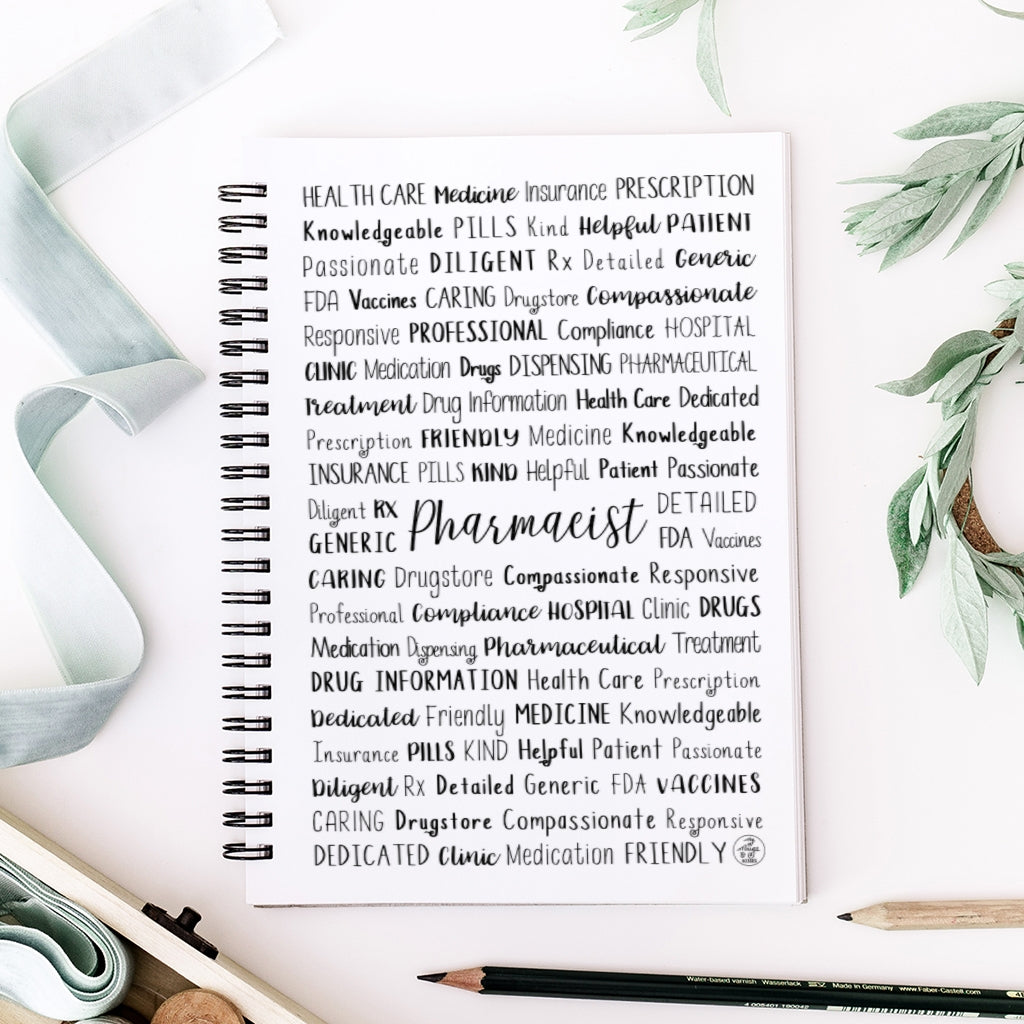 HEALTH CARE Medicine Insurance PRESCRIPTION
Knowledgeable PILLS Kind Helpful PATIENT
Passionate DILIGENT Rx Detailed Generic
FDA Vaccines CARING Drugstore Compassionate
Responsive PROFESSIONAL Compliance HOSPITAL
CLINIC Medication Drugs DISPENSING PHARMACEUTICAL
Treatment Drug Information Health Care Dedicated
Prescription FRIENDLY Medicine Knowledgeable
INSURANCE PILLS KIND Helpful Patient Passionate
Diligent RX
GENERIC
Pharmacist
DETAILED
FDA Vaccines
CARING Drugstore Compassionate Responsive
Professional Compliance HOSPITAL Clinic DRUGS
Medication Dispensing Pharmaceutical Treatment
DRUG INFORMATION Health Care Prescription
Dedicated Friendly MEDICINE Knowledgeable
Insurance PILLS KIND Helpful Patient Passionate
Diligent Rx Detailed Generic FDA VACCINES
CARING Drugstore Compassionate Responsive
DEDICATED Clinic Medication FRIENDLY
Water-based varnish Wasserlack Made in Germany www.Faber-Castell.com
4 005401 190042